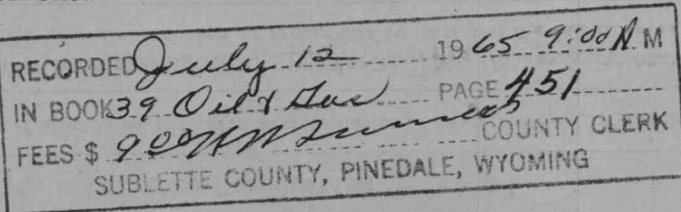 RECORDED July 12 1965 9:00 A M
IN BOOK 39 Oil & Gas PAGE 451
FEES $ 9.00 COUNTY CLERK
SUBLETTE COUNTY, PINEDALE, WYOMING